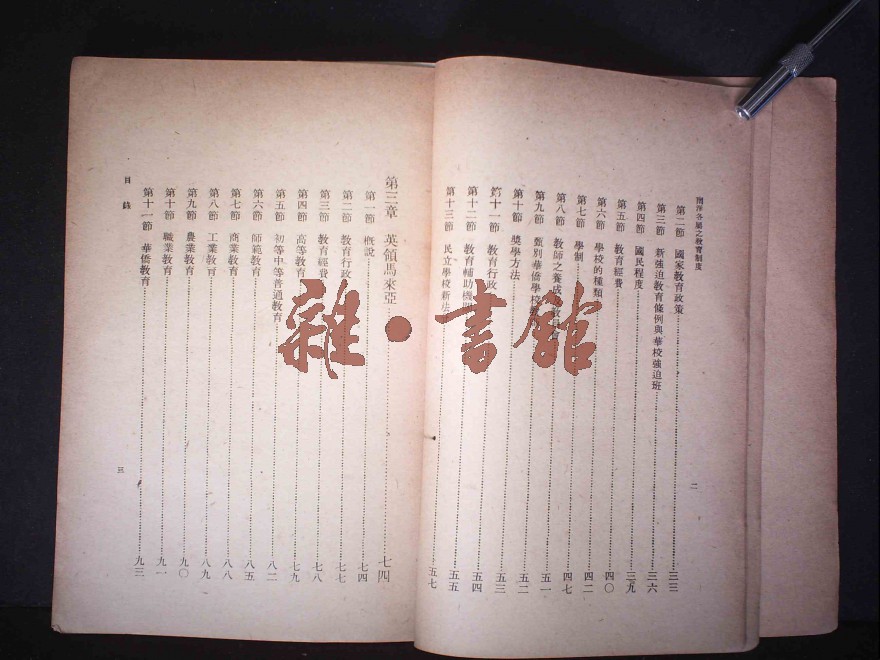 南洋各屬之教育制度
第二節 國家教育政策 三三
第三節 新強迫教育條例與華校強迫班 三六
第四節 國民程度 三九
第五節 教育經費 四〇
第六節 學校的種類 四二
第七節 學制 四七
第八節 教師之養成
第九節 甄別華僑學校 五一
第十節 獎學方法 五二
第十一節 教育行政 五三
第十二節 教育輔助機 五四
第十三節 民立學校新法 五五
五七
二
第三章 英領馬來亞 七四
第一節 概說 七四
第二節 教育行政 七七
第三節 教育經費 七八
第四節 高等教育 七九
第五節 初等中等普通教育 八二
第六節 師範教育 八五
第七節 商業教育 八八
第八節 工業教育 八九
第九節 農業教育 九〇
第十節 職業教育 九一
第十一節 華僑教育 九三
目錄
三
雜·書館